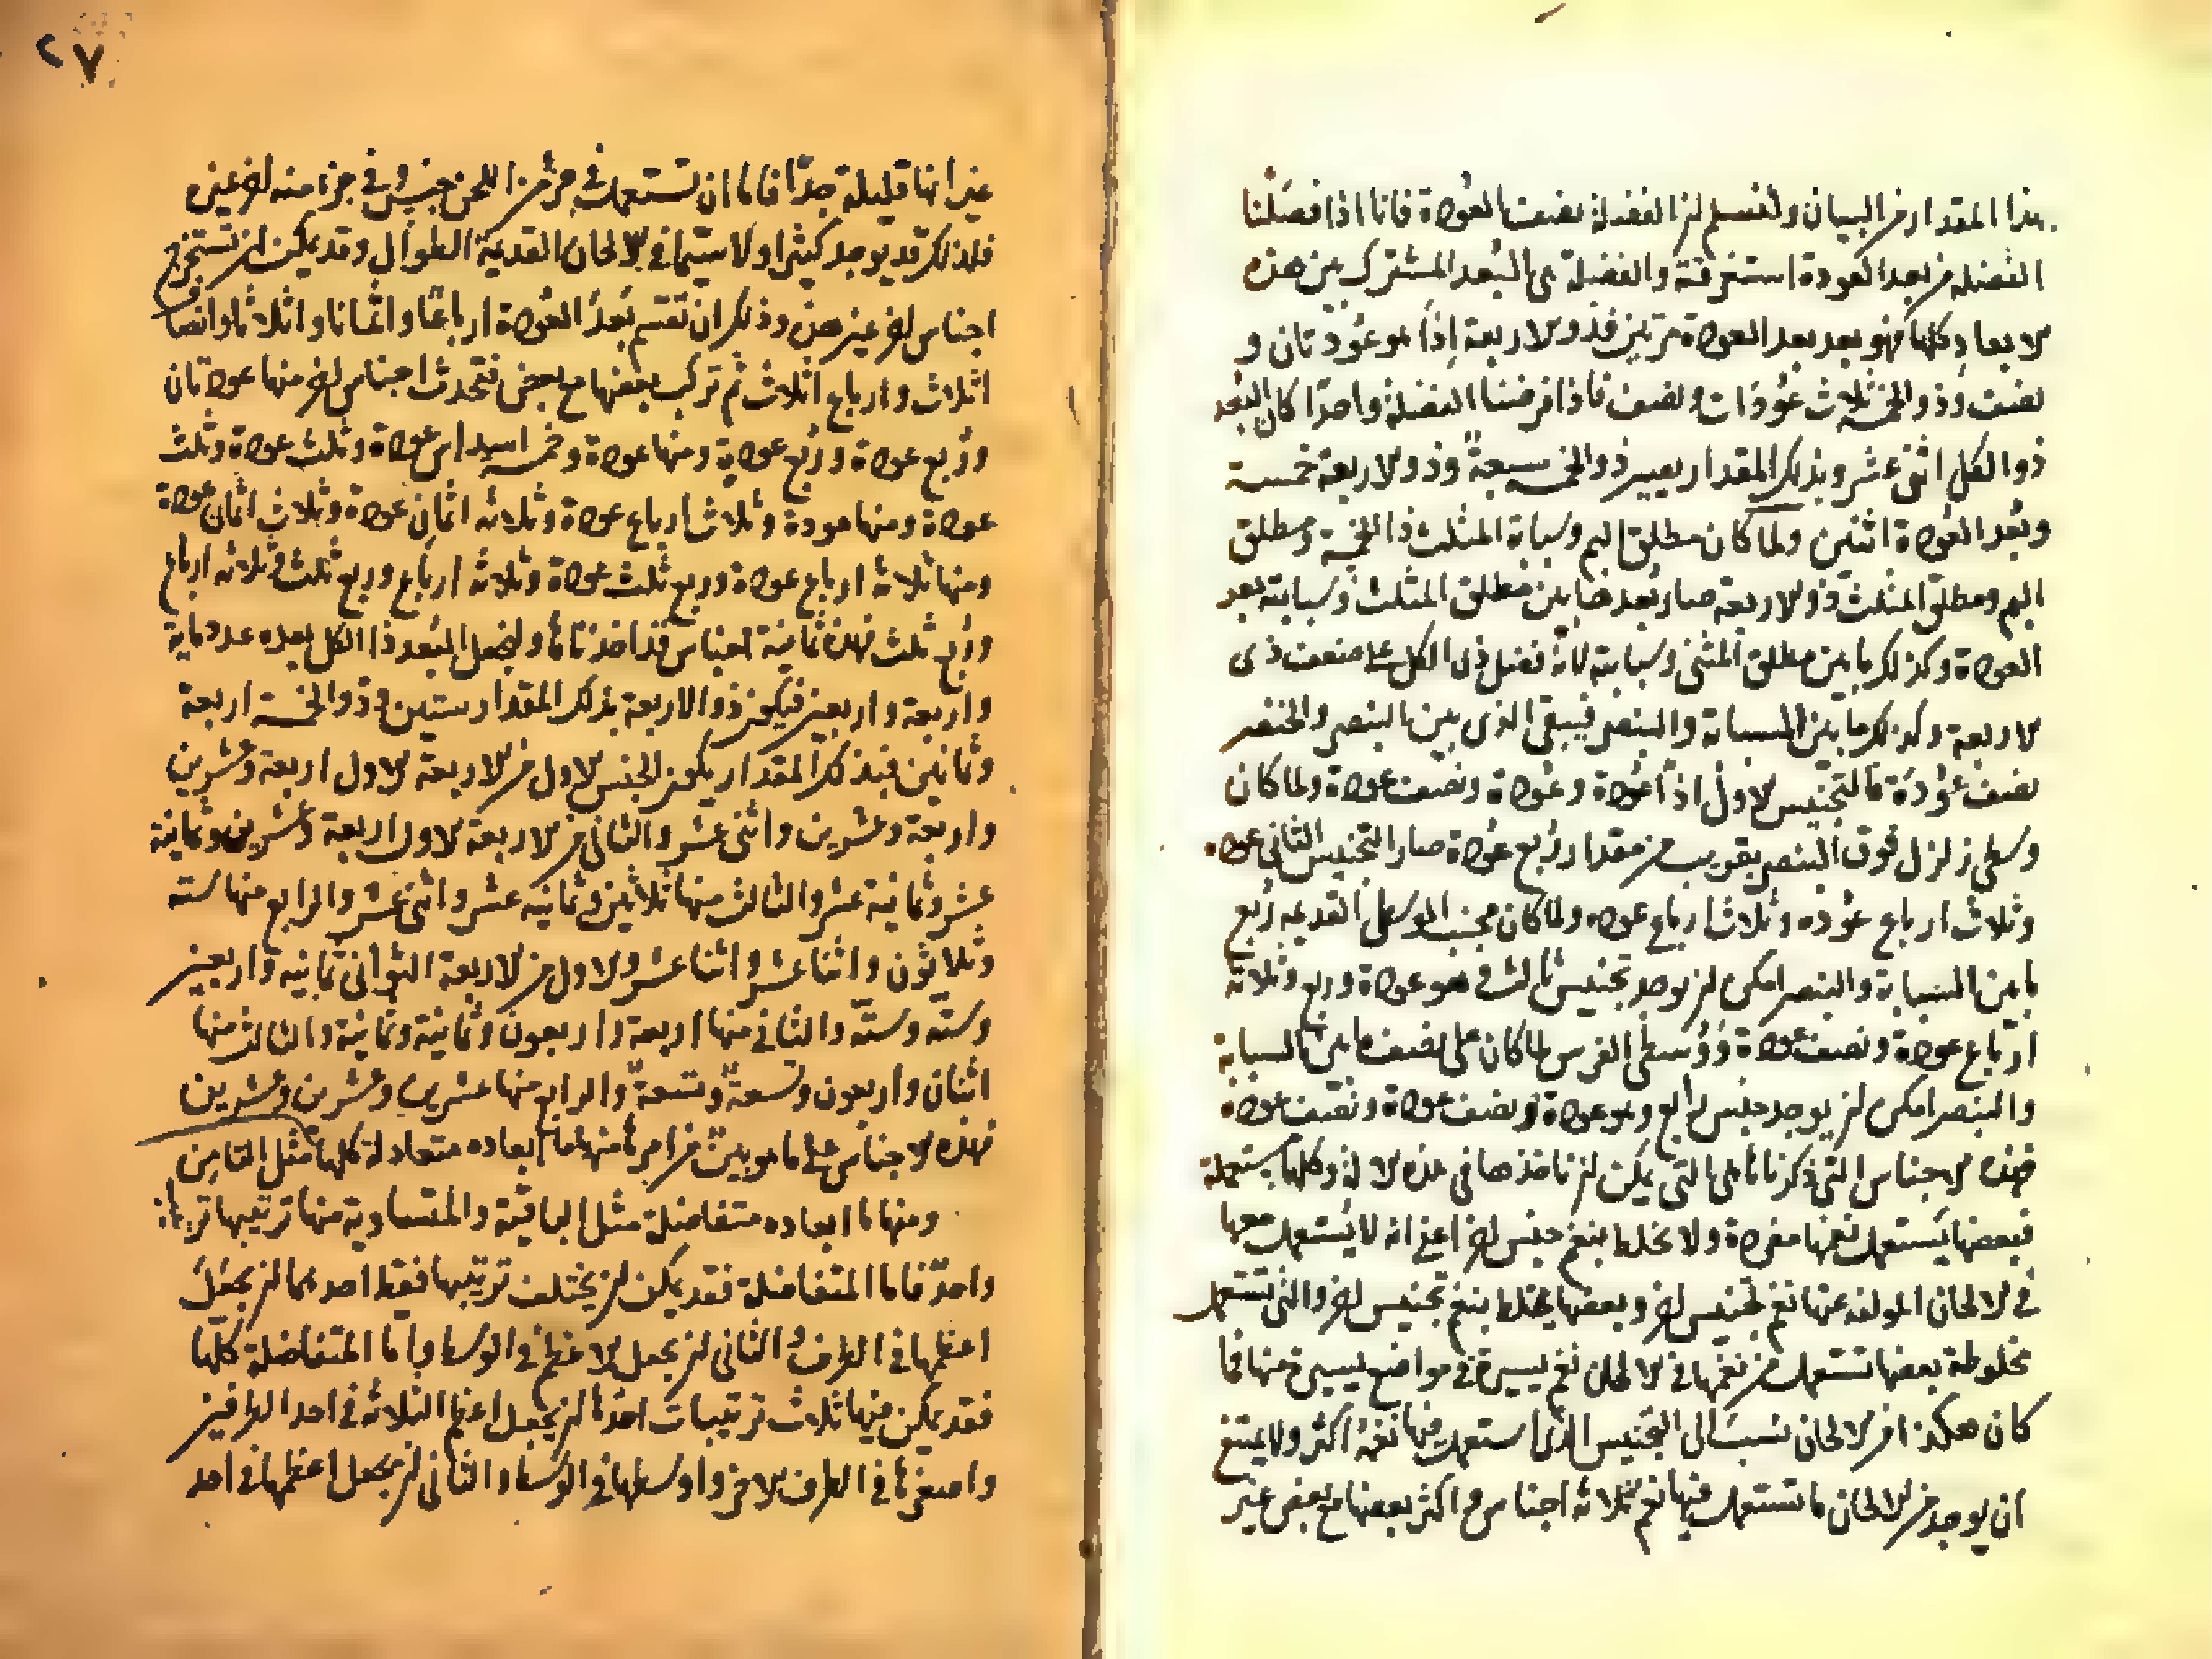 هذا المقدار من البيان ولنسم الفضلة نصف العودة فانا اذا فصلنا
الفضلة من بعد العودة استغرقته والفضلة هى البعد المشترك بين هذه
الابعاد كلها فهو يعد بعد العودة مرتين فذو الاربعة اذا هو عودتان و
نصف وذو الخمسة ثلاث عودات ونصف فاذا فرضنا الفضلة واحدا كان البعد
ذو الكل اثنى عشر وبذلك المقدار يصير ذو الخمسة سبعة وذو الاربعة خمسة
وبعد العودة اثنين ولما كان مطلق البم وسبابة المثلث ذا الخمسة ومطلق
البم ومطلق المثلث ذو الاربعة صار بعد ما بين مطلق المثلث وسبابته بعد
العودة وكذلك ما بين مطلق المثنى وسبابته لانه فضل ذى الكل على ضعف ذى
الاربعة وكذلك ما بين السبابة والبنصر فيبقى الذى بين البنصر والخنصر
نصف عودة فالتجنيس الاول اذا عودة وعودة ونصف عودة ولما كان
وسطى زلزل فوق البنصر بقريب من مقدار ربع عودة صار التجنيس الثانى عودة
وثلاث ارباع عودة وثلاث ارباع عودة ولما كان مجنب الوسطى القديمة ربع
ما بين السبابة والبنصر امكن ان يوجد تجنيس ثالث وهو عودة وربع وثلاثة
ارباع عودة ونصف عودة ووسطى الفرس لما كان على نصف ما بين السبابة
والبنصر امكن ان يوجد جنس رابع وهو عودة ونصف عودة ونصف عودة
فهذه الاجناس التى ذكرناها هى التى يمكن ان ناخذها فى هذه الالة وكلها مستعملة
فبعضها يستعمل نغمها مفردة ولا يخلط بنغم جنس اخر اعنى انه لا يستعمل معها
فى الالحان المولفة عنها نغم تجنيس اخر وبعضها يخلط بنغم تجنيس اخر والتى تستعمل
مخلوطة بعضها تستعمل من نغمها فى الالحان نغم يسيرة فى مواضع يسيرة منها فما
كان هكذا من الالحان نسب الى التجنيس الذى استعمل فيها نغمه اكثر ولا يمتنع
ان يوجد من الالحان ما تستعمل فيها نغم ثلاثة اجناس او اكثر بعضها مع بعض غير
٢٧
غير انها قليلة جدا فاما ان تستعمل فى جزء من اللحن جنس وفى جزء منه اخر غيره
فلذلك قد يوجد كثيرا ولا سيما فى الالحان القديمة الطوال وقد يمكن ان تستخرج
اجناس اخر غير هذه وذلك ان تقسم بعد العودة ارباعا واثمانا واثلاثا وانصاف
اثلاث وارباع اثلاث ثم تركب بعضها مع بعض فتحدث اجناس اخر منها عودتان
وربع عودة وربع عودة ومنها عودة وخمسة اسداس عودة وثلث عودة وثلث
عودة ومنها عودة وثلاث ارباع عودة وثلاثه اثمان عودة وثلاث اثمان عودة
ومنها ثلاثه ارباع عودة وربع ثلث عودة وثلاثه ارباع وربع ثلث وثلاثه ارباع
وربع ثلث فهذه ثمانية اجناس قد اخذناها ولنجعل البعد ذا الكل بعده عدد ماية
واربعة واربعين فيكون ذو الاربعة بذلك المقدار ستين وذو الخمسة اربعة
وثمانين فبذلك المقدار يكون الجنس الاول من الاربعة الاول اربعة وعشرين
واربعة وعشرين واثنى عشر والثانى من الاربعة الاول اربعة وعشرين وثمانية
عشر وثمانية عشر والثالث منها ثلاثين وثمانيه عشر واثنى عشر والرابع منها سته
وثلاثون واثنا عشر واثنا عشر والاول من الاربعة الثوانى ثمانيه واربعين
وستة وستة والثانى منها اربعة واربعون وثمانية وثمانية والثالث منها
اثنان واربعون وتسعة وتسعة والرابع منها عشرين وعشرين وعشرين
فهذه الاجناس على ما هو بين من امرها منها ما ابعاده متعادلة كلها مثل الثامن
ومنها ما ابعاده متفاضلة مثل الباقية والمتساوية منها ترتيبها ترتيب
واحد فاما المتفاضلة فقد يمكن ان يختلف ترتيبها فقط احدهما ان يجعل
اعظمها فى الطرف والثانى ان يجعل الاعظم فى الوسط واما المتفاضلة كلها
فقد يمكن فيها ثلاث ترتيبات احدها ان يجعل اعظم الثلاثه فى احد الطرفين
واصغرها فى الطرف الاخر واوسطها فى الوسط والثانى ان يجعل اعظمها فى احد